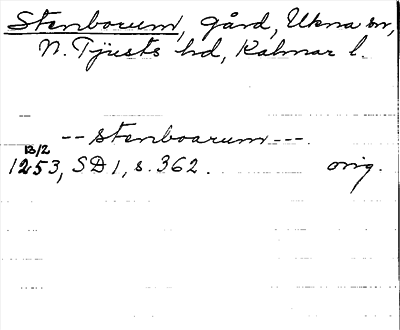 Stenborum, gård, Ukna sn,
N. Tjusts hd, Kalmar l.
-- stenboarum ---
13/2
1253, SD 1, s. 362. orig.